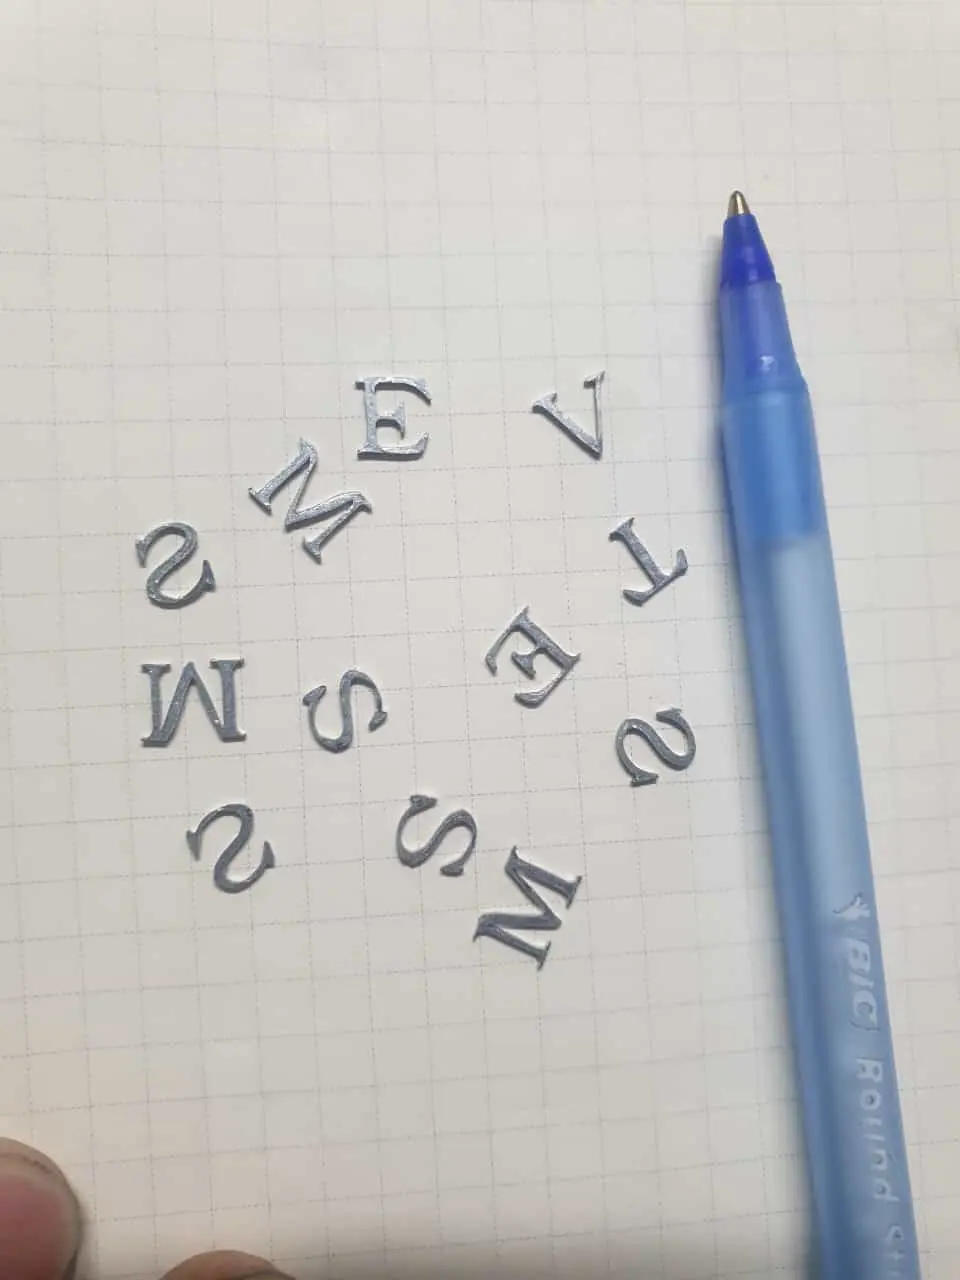 E V
M
S T
E
M S
S
S S
M
BIC Round St